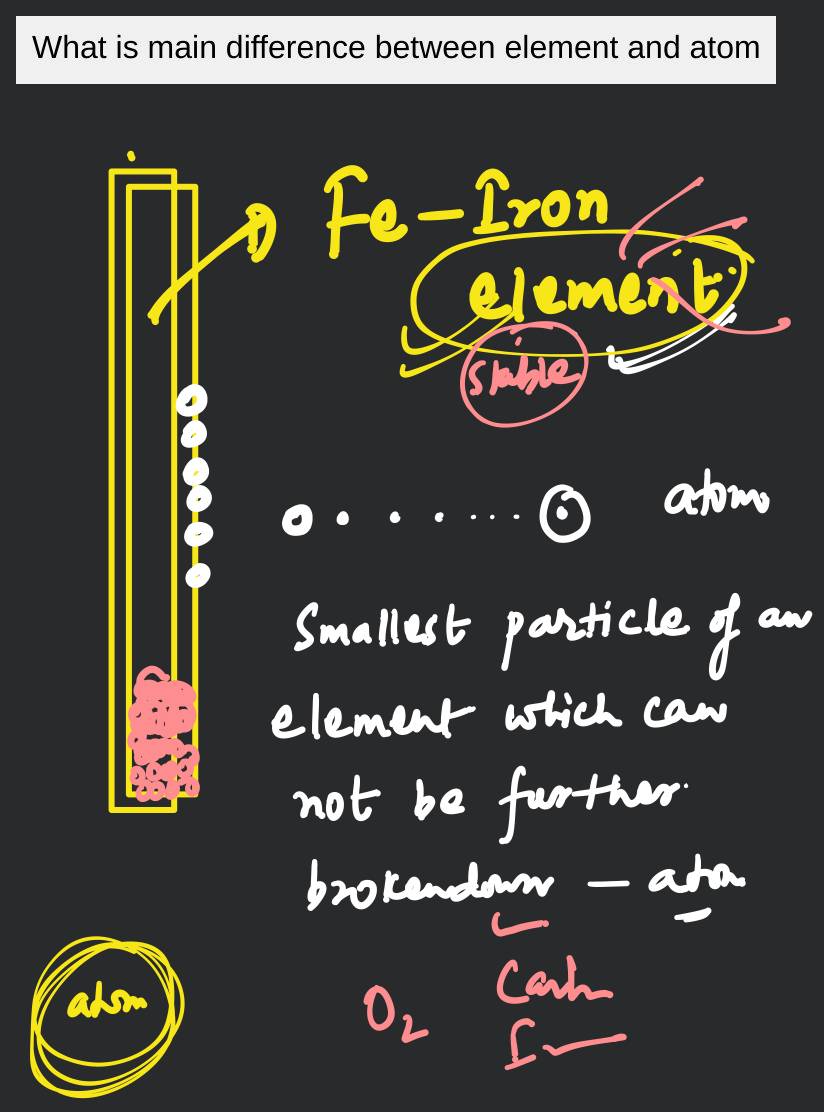 What is main difference between element and atom
Fe - Iron
element
stable
atom
Smallest particle of an
element which can
not be further
brokendown - atom
atom
O2